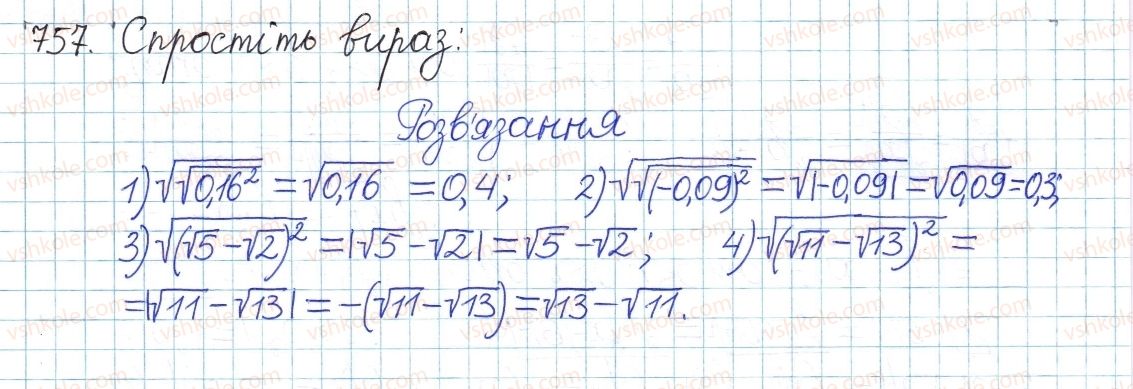 757. Спростіть вираз:
Розв'язання
1) √√0,16² = √0,16 = 0,4; 2) √√(-0,09)² = √|-0,09| = √0,09 = 0,3;
3) √(√5 - √2)² = |√5 - √2| = √5 - √2; 4) √(√11 - √13)² =
= |√11 - √13| = -(√11 - √13) = √13 - √11.